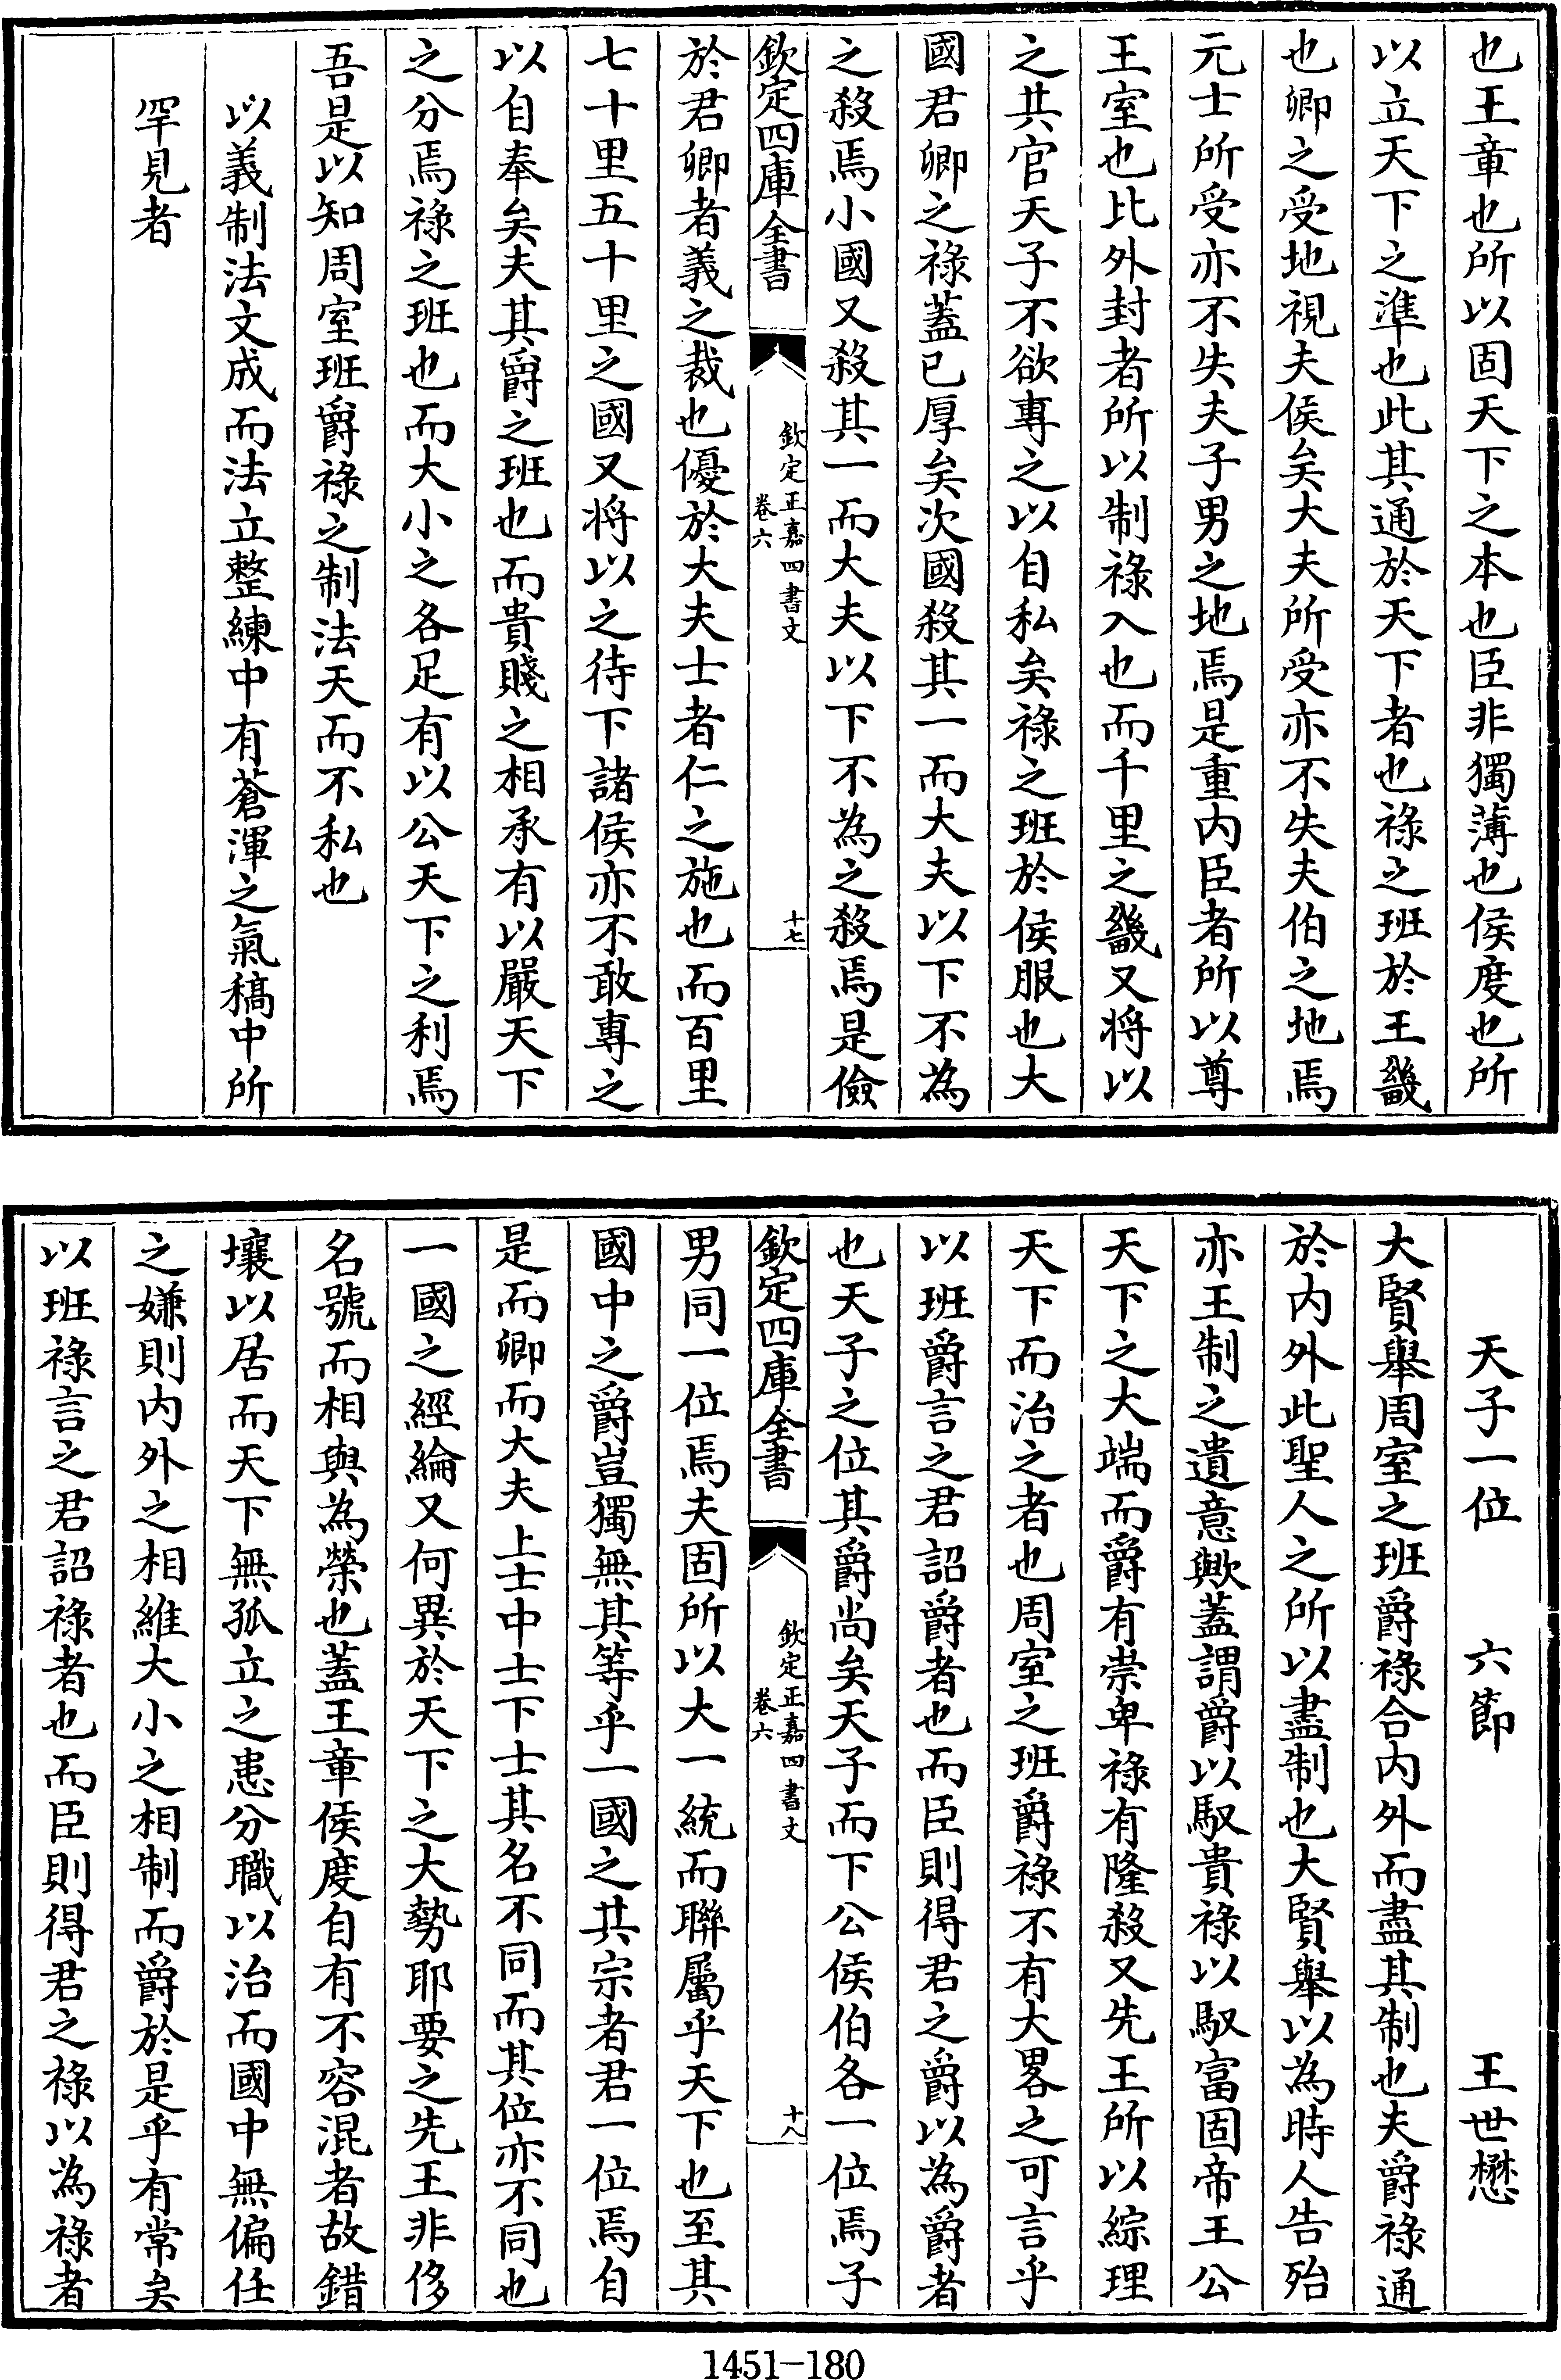 也王章也所以固天下之本也臣非獨薄也侯度也所
以立天下之準也此其通於天下者也祿之班於王畿
也卿之受地視夫侯矣大夫所受亦不失夫伯之地焉
元士所受亦不失夫子男之地焉是重內臣者所以尊
王室也比外封者所以制祿入也而千里之畿又將以
之其官天子不欲專之以自私矣祿之班於侯服也大
國君卿之祿蓋已厚矣次國殺其一而大夫以下不為
之殺焉小國又殺其一而大夫以下不為之殺焉是儉
欽定四庫全書
欽定正嘉四書文
卷六
十七
於君卿者義之裁也優於大夫士者仁之施也而百里
七十里五十里之國又將以之待下諸侯亦不敢專之
以自奉矣夫其爵之班也而貴賤之相承有以嚴天下
之分焉祿之班也而大小之各足有以公天下之利焉
吾是以知周室班爵祿之制法天而不私也
以義制法文成而法立整練中有蒼渾之氣稿中所
罕見者
天子一位 六節 王世懋
大賢舉周室之班爵祿合內外而盡其制也夫爵祿通
於內外此聖人之所以盡制也大賢舉以為時人告殆
亦王制之遺意歟蓋謂爵以馭貴祿以馭富固帝王公
天下之大端而爵有崇卑祿有隆殺又先王所以綜理
天下而治之者也周室之班爵祿不有大畧之可言乎
以班爵言之君詔爵者也而臣則得君之爵以為爵者
也天子之位其爵尚矣天子而下公侯伯各一位焉子
欽定四庫全書
欽定正嘉四書文
卷六
十八
男同一位焉夫固所以大一統而聯屬乎天下也至其
國中之爵豈獨無其等乎一國之其宗者君一位焉自
是而卿而大夫上士中士下士其名不同而其位亦不同也
一國之經綸又何異於天下之大勢耶要之先王非侈
名號而相與為榮也蓋王章侯度自有不容混者故錯
壤以居而天下無孤立之患分職以治而國中無偏任
之嫌則內外之相維大小之相制而爵於是乎有常矣
以班祿言之君詔祿者也而臣則得君之祿以為祿者
1451-180